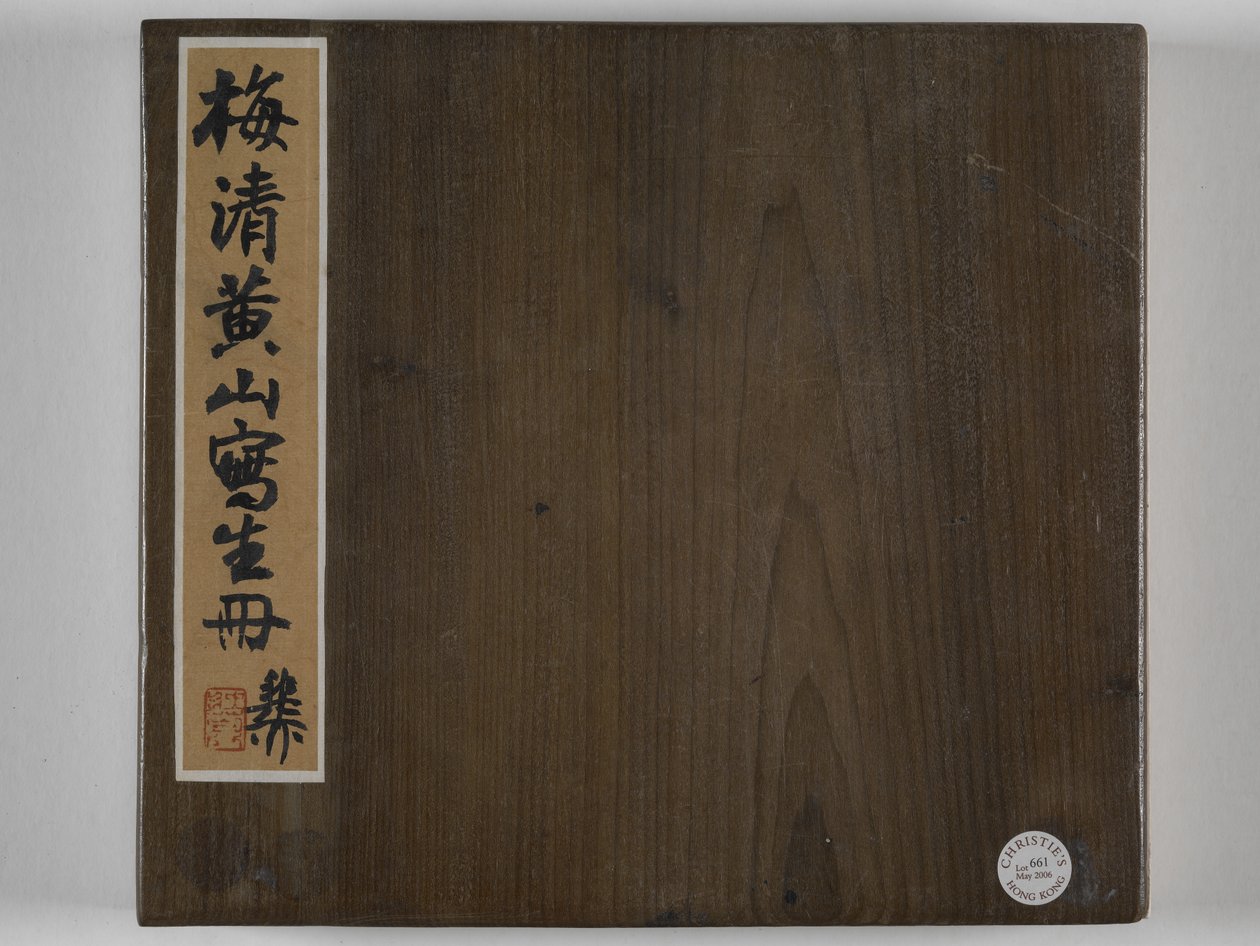 梅清黄山寫生冊
CHRISTIE'S
Lot 661
May 2006
HONG KONG